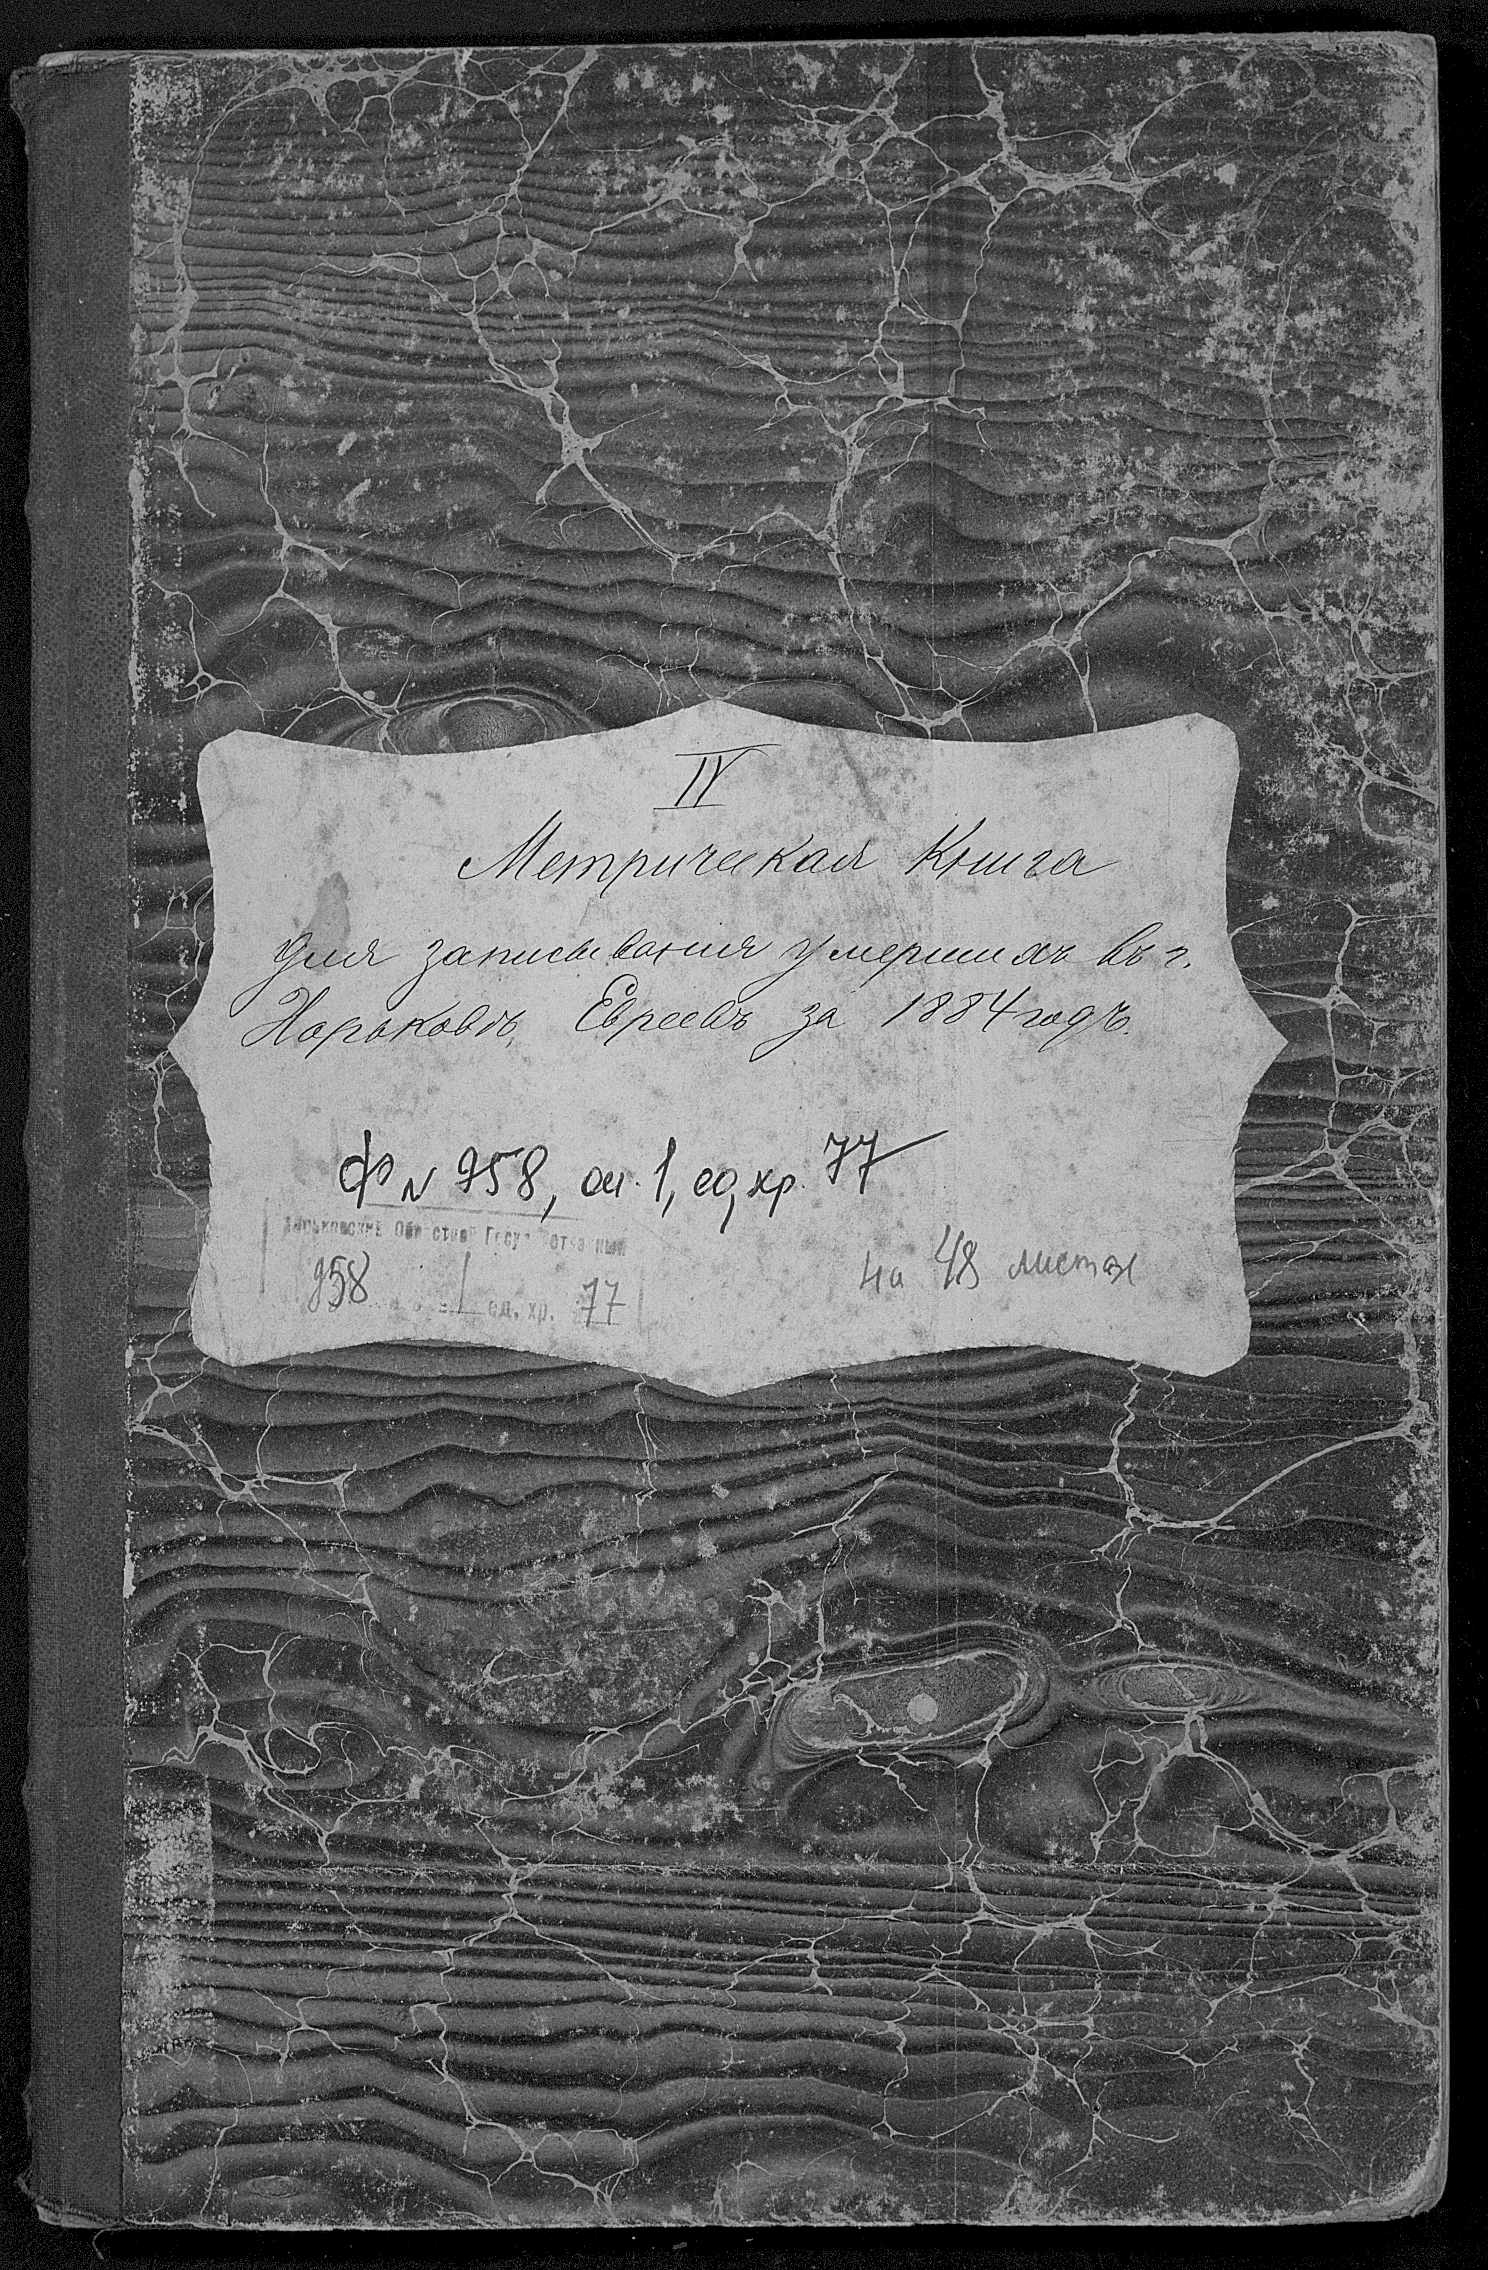 IV
Метрическая Книга
для записыванія умершихъ въ г.
Харьковѣ, Евреевъ за 1884 годъ.
Ф N 958, оп. 1, ед, хр. 77
Харьковский Областной Государственный
958 1 ед. хр. 77
на 48 листах